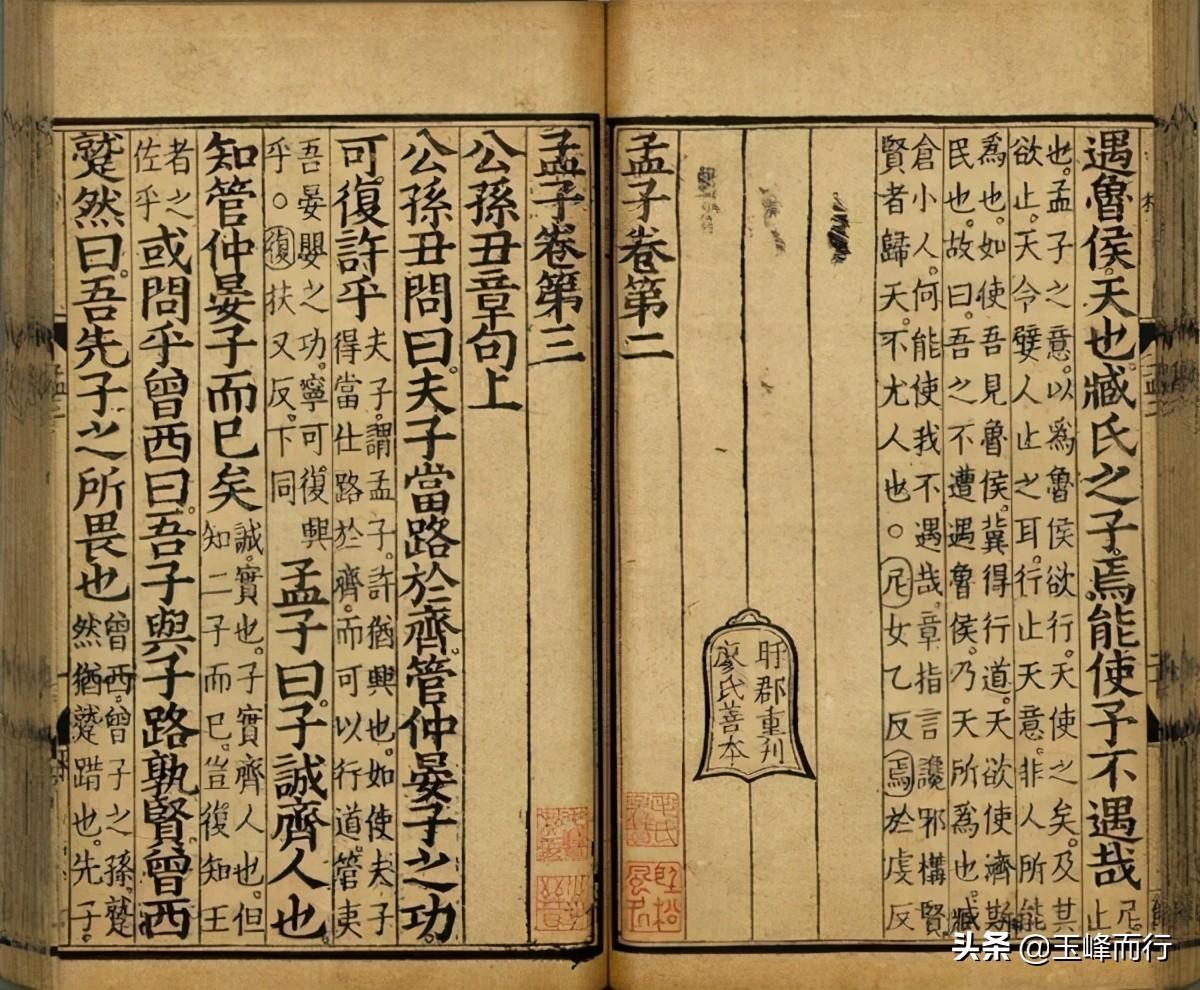 遇魯侯。天也。臧氏之子。焉能使予不遇哉尼止
也。孟子之意。以爲魯侯欲行。天使之矣。及其
欲止。天令嬖人止之耳。行止天意。非人所能
爲也。如使吾見魯侯。冀得行道。天欲使濟斯
民也。故曰。吾之不遭遇魯侯。乃天所爲也。臧
倉小人。何能使我不遇哉。章指言讒邪構賢
賢者歸天。不尤人也。○尼女乙反焉於虔反
盱郡重刊
廖氏善本
孟子卷第二
孟子卷第三
公孫丑章句上
公孫丑問曰。夫子當路於齊。管仲晏子之功。
可復許乎
夫子。謂孟子。許猶興也。如使夫子
得當仕路於齊。而可以行道。管夷
吾晏嬰之功。寧可復興
乎。○復扶又反。下同
孟子曰。子誠齊人也。
知管仲晏子而已矣
誠。實也。子實齊人也。但
知二子而已。豈復知王
者之
佐乎
或問乎曾西曰。吾子與子路孰賢。曾西
蹵然曰。吾先子之所畏也
曾西。曾子之孫。蹵
然猶蹵踖也。先子。
头条 @玉峰而行